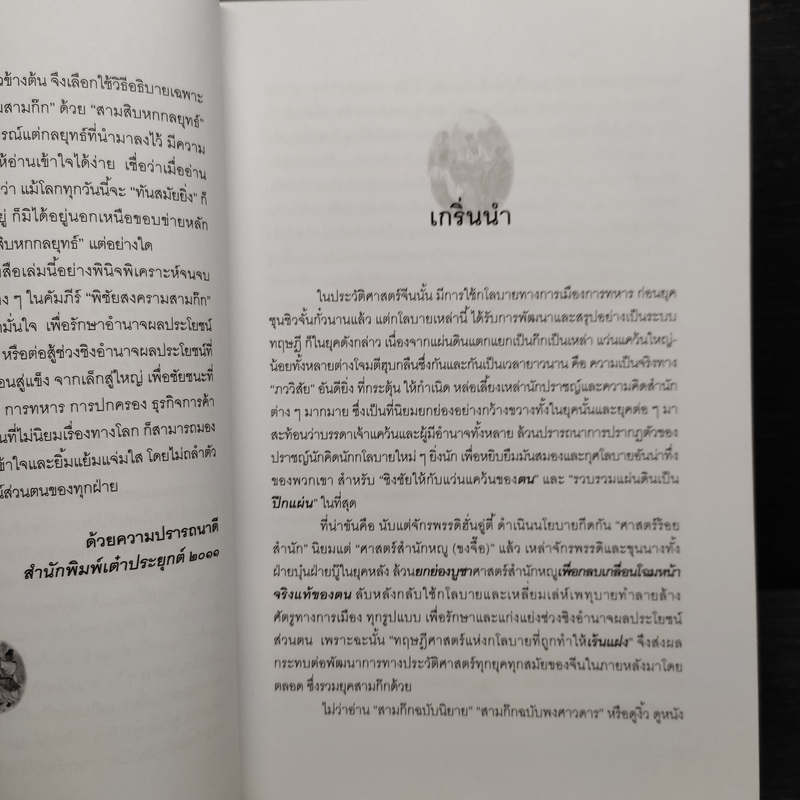 วข้างต้น จึงเลือกใช้วิธีอธิบายเฉพาะ
มสามก๊ก" ด้วย "สามสิบหกกลยุทธ์"
รณ์แต่กลยุทธ์ที่นำมาลงไว้ มีความ
ห้อ่านเข้าใจได้ง่าย เชื่อว่าเมื่ออ่าน
ว่า แม้โลกทุกวันนี้จะ "ทันสมัยยิ่ง" ก็
ยู่ ก็มิได้อยู่นอกเหนือขอบข่ายหลัก
สิบหกกลยุทธ์" แต่อย่างใด
สือเล่มนี้อย่างพินิจพิเคราะห์จนจบ
าง ๆ ในคัมภีร์ "พิชัยสงครามสามก๊ก"
ามั่นใจ เพื่อรักษาอำนาจผลประโยชน์
หรือต่อสู้ช่วงชิงอำนาจผลประโยชน์ที่
อนสู่แข็ง จากเล็กสู่ใหญ่ เพื่อชัยชนะที่
การทหาร การปกครอง ธุรกิจการค้า
นที่ไม่นิยมเรื่องทางโลก ก็สามารถมอง
ข้าใจและยิ้มแย้มแจ่มใส โดยไม่ถลำตัว
น์ส่วนตนของทุกฝ่าย
ด้วยความปรารถนาดี
สำนักพิมพ์เต๋าประยุกต์ ๒๐๑๑
เกริ่นนำ
ในประวัติศาสตร์จีนนั้น มีการใช้กโลบายทางการเมืองการทหาร ก่อนยุค
ชุนชิวจั้นกั๋วนานแล้ว แต่กโลบายเหล่านี้ ได้รับการพัฒนาและสรุปอย่างเป็นระบบ
ทฤษฎี ก็ในยุคดังกล่าว เนื่องจากแผ่นดินแตกแยกเป็นก๊กเป็นเหล่า แว่นแคว้นใหญ่-
น้อยทั้งหลายต่างโจมตีฮุบกลืนซึ่งกันและกันเป็นเวลายาวนาน คือ ความเป็นจริงทาง
"ภววิสัย" อันดียิ่ง ที่กระตุ้น ให้กำเนิด หล่อเลี้ยงเหล่านักปราชญ์และความคิดสำนัก
ต่าง ๆ มากมาย ซึ่งเป็นที่นิยมยกย่องอย่างกว้างขวางทั้งในยุคนั้นและยุคต่อ ๆ มา
สะท้อนว่าบรรดาเจ้าแคว้นและผู้มีอำนาจทั้งหลาย ล้วนปรารถนาการปรากฏตัวของ
ปราชญ์นักคิดนักกโลบายใหม่ ๆ ยิ่งนัก เพื่อหยิบยืมมันสมองและกุศโลบายอันน่าทึ่ง
ของพวกเขา สำหรับ "ชิงชัยให้กับแว่นแคว้นของตน" และ "รวบรวมแผ่นดินเป็น
ปึกแผ่น" ในที่สุด
ที่น่าขันคือ นับแต่จักรพรรดิฮั่นอู่ตี้ ดำเนินนโยบายกีดกัน "ศาสตร์ร้อย
สำนัก" นิยมแต่ "ศาสตร์สำนักหญู (ขงจื๊อ)" แล้ว เหล่าจักรพรรดิและขุนนางทั้ง
ฝ่ายบุ๋นฝ่ายบู๊ในยุคหลัง ล้วนยกย่องบูชาศาสตร์สำนักหญูเพื่อกลบเกลื่อนโฉมหน้า
จริงแท้ของตน ลับหลังกลับใช้กโลบายและเหลี่ยมเล่ห์เพทุบายทำลายล้าง
ศัตรูทางการเมือง ทุกรูปแบบ เพื่อรักษาและแก่งแย่งช่วงชิงอำนาจผลประโยชน์
ส่วนตน เพราะฉะนั้น "ทฤษฎีศาสตร์แห่งกโลบายที่ถูกทำให้เร้นแฝง" จึงส่งผล
กระทบต่อพัฒนาการทางประวัติศาสตร์ทุกยุคทุกสมัยของจีนในภายหลังมาโดย
ตลอด ซึ่งรวมยุคสามก๊กด้วย
ไม่ว่าอ่าน "สามก๊กฉบับนิยาย" "สามก๊กฉบับพงศาวดาร" หรือดูงิ้ว ดูหนัง